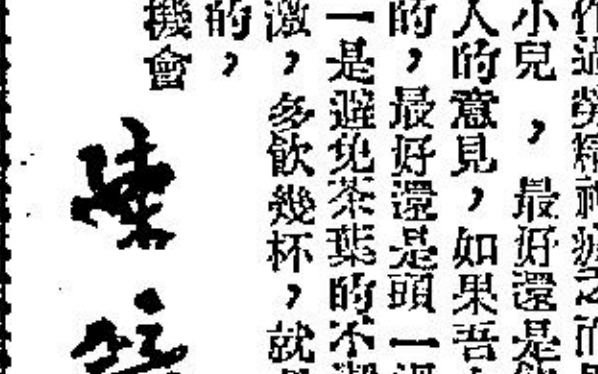 作過勞精神疲乏而
小兒，最好還是
人的意見，如果吾
的，最好還是頭一
一是避免茶葉的不
激，多飲幾杯，就
的，
機會
陳